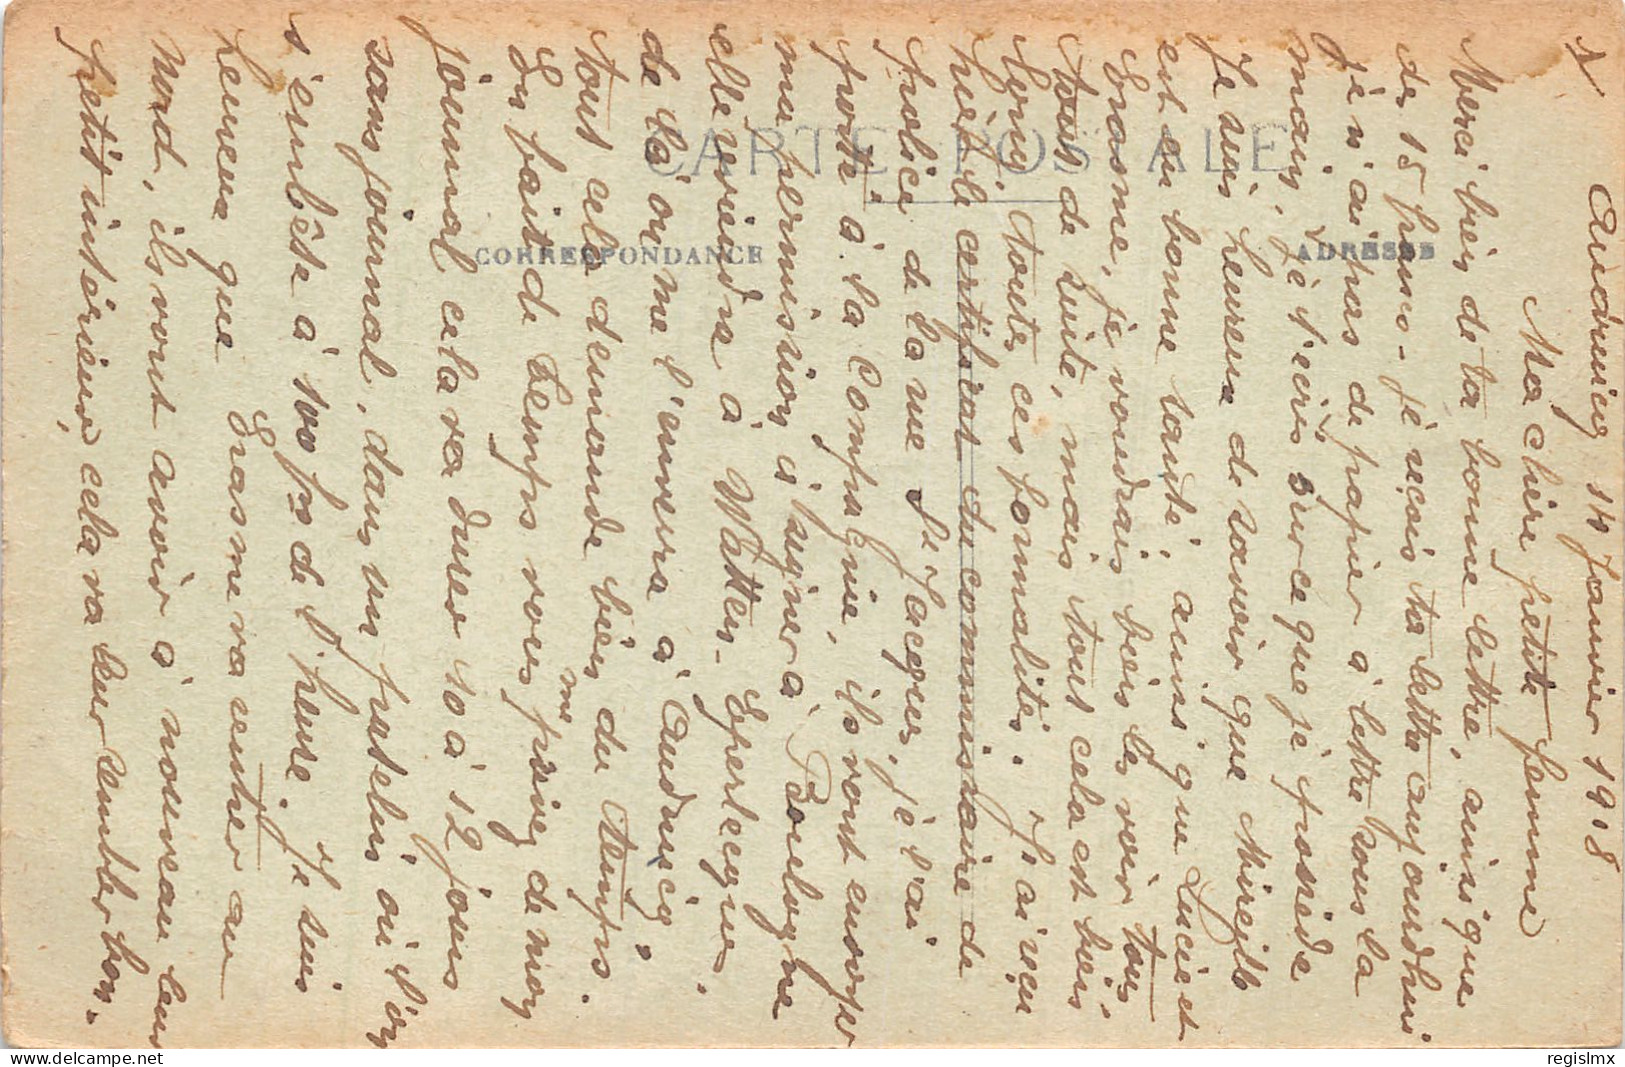 1/ Audruicq 14 Janvier 1918
Ma chère petite femme
Merci bien de ta bonne lettre, ainsi que
des 15 francs - je reçois ta lettre aujourdhui
je n'ai pas de papier à lettre sous la
main, je t'ecris sur ce que je possède
Je suis heureux de savoir que Mireille
est en bonne santé, ainsi que Lucie et
Erasme, je voudrais bien les voir tous
tout de suite, mais tout cela est bien
long, toutes ces formalités. J'ai reçu
hier le certificat du commissaire de
police de la rue St Jacques, je l'ai
porté à la Compagnie, ils vont envoyer
ma permission à signer à Boulogne
elle viedra à Watten - Eperlecques,
de là on me l'enverra à Audruicq
tout cela demande bien du temps.
En fait de temps vous me privez de mon
journal cela va durer 10 à 12 jours
sans journal, dans un patelin où l'on
s'embête à 100 frs de l'heure. Je suis
heureux que Erasme va entrer au
Nord, ils vont avoir à nouveau leur
petit intérieur, cela va leur sembler bon.
CARTE POSTALE
CORRESPONDANCE
ADRESSE
regislmx